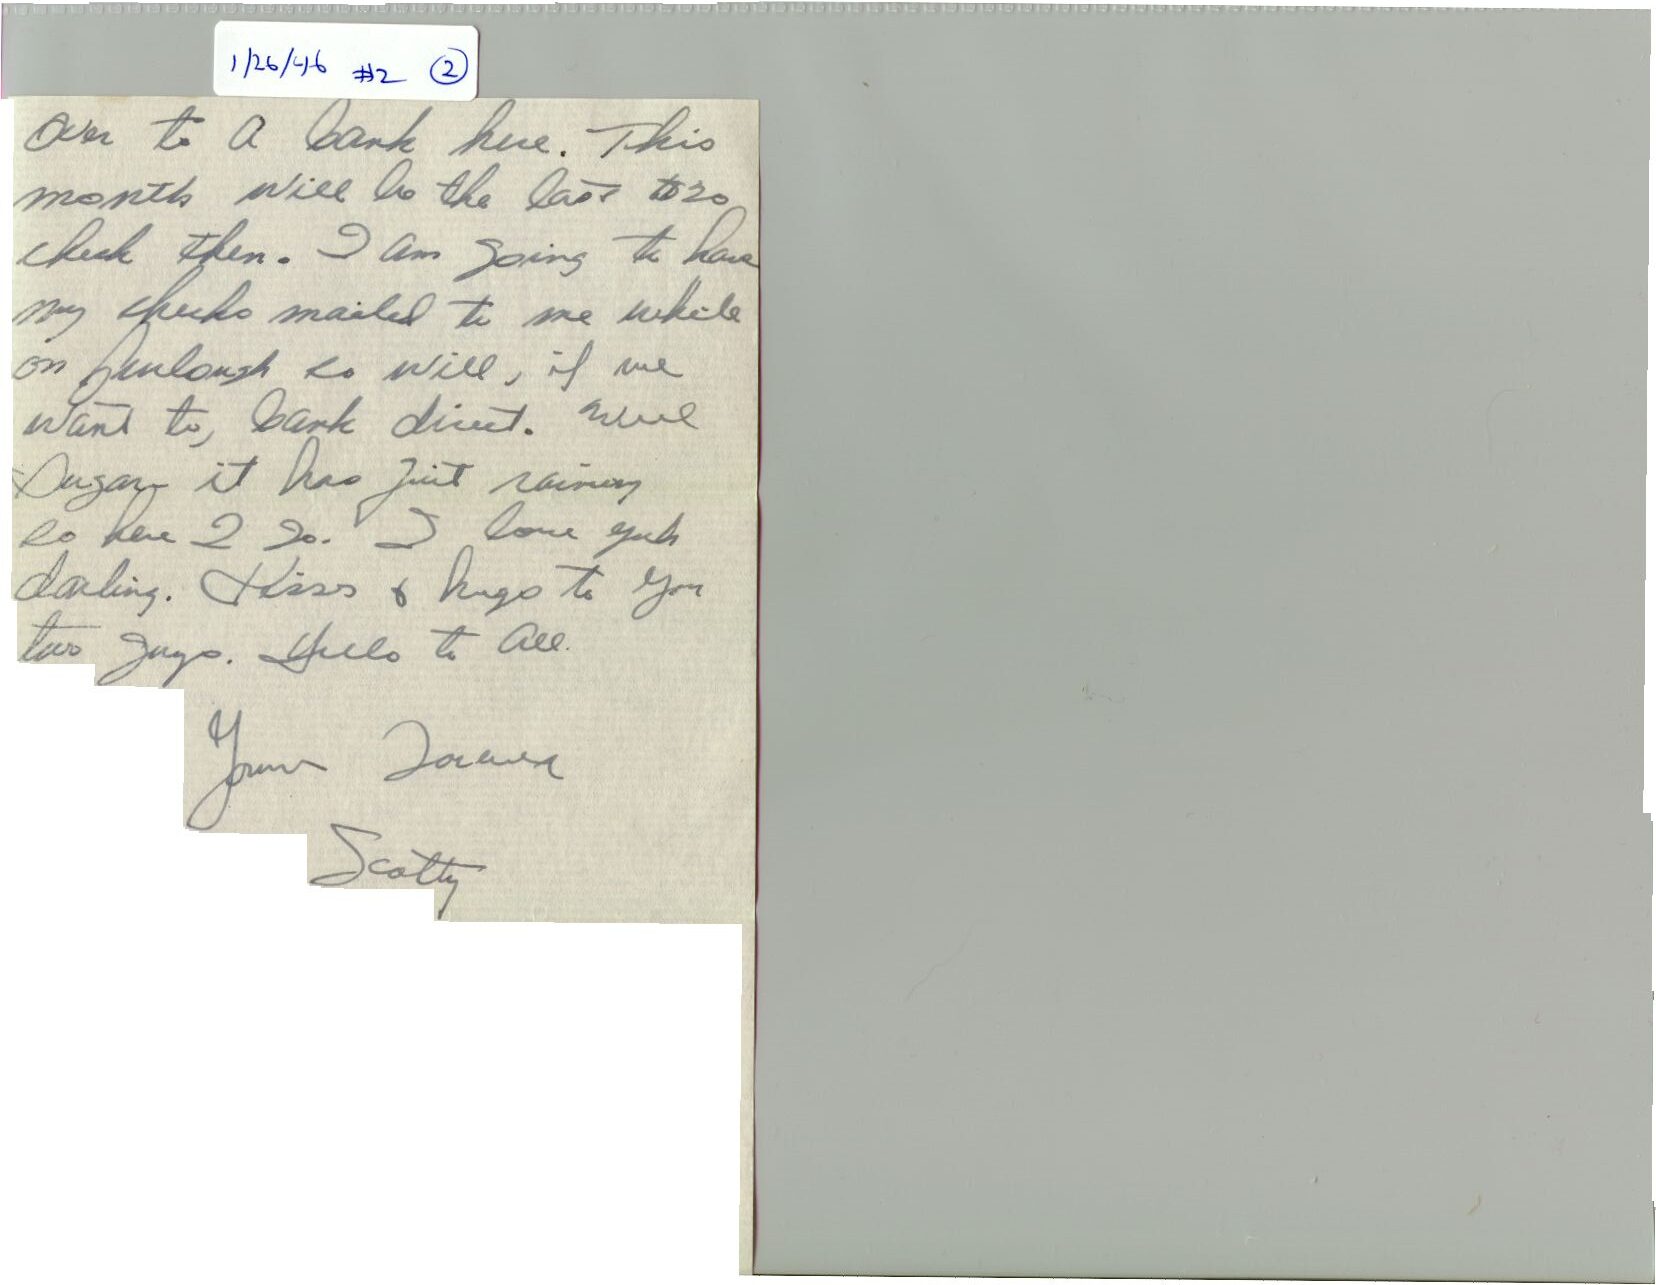 1/26/46 #2 ②
over to a bank here. This
month will be the last $20
check then. I am going to have
my checks mailed to me while
on furlough so will, if we
want to, bank direct. Well
Sugar it has just rainin
so here I go. I love yuh
darling. Kisses & hugs to you
two guys. Hello to all.
Yours Forever
Scotty